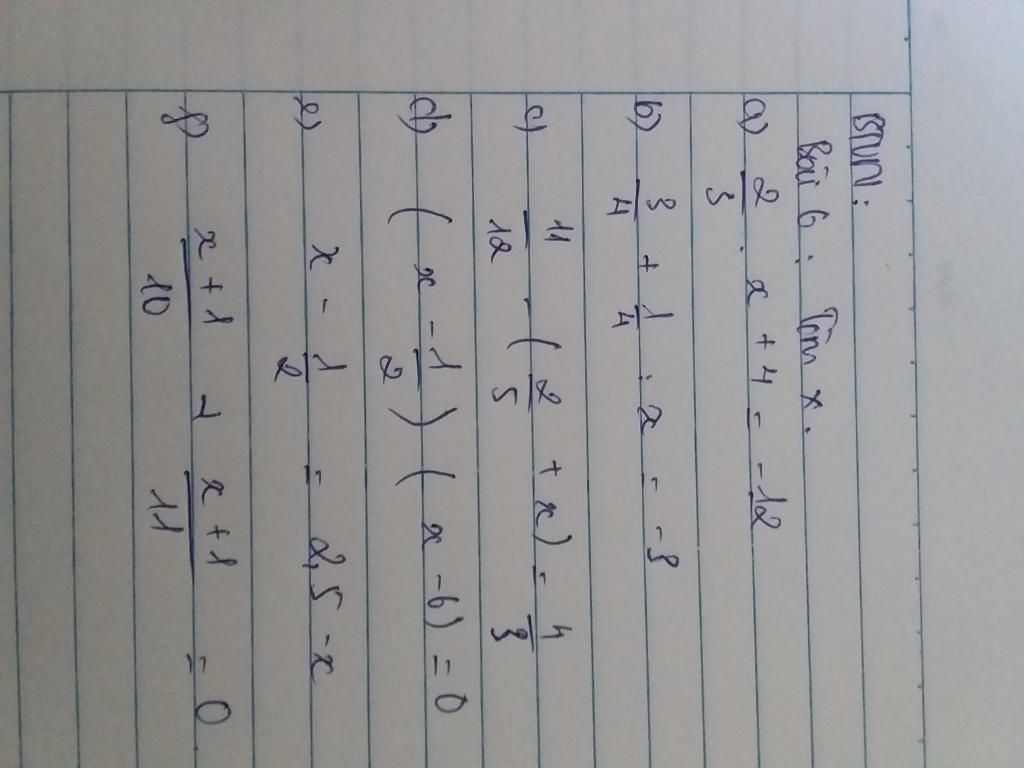 BTVN:
Bài 6: Tìm x.
a) 2/3 . x + 4 = -12
b) 3/4 + 1/4 : x = -3
c) 11/12 - (2/5 + x) = 4/3
d) (x - 1/2) (x - 6) = 0
e) x - 1/2 = 2,5 - x
f) x + 1/10 + x + 1/11 = 0